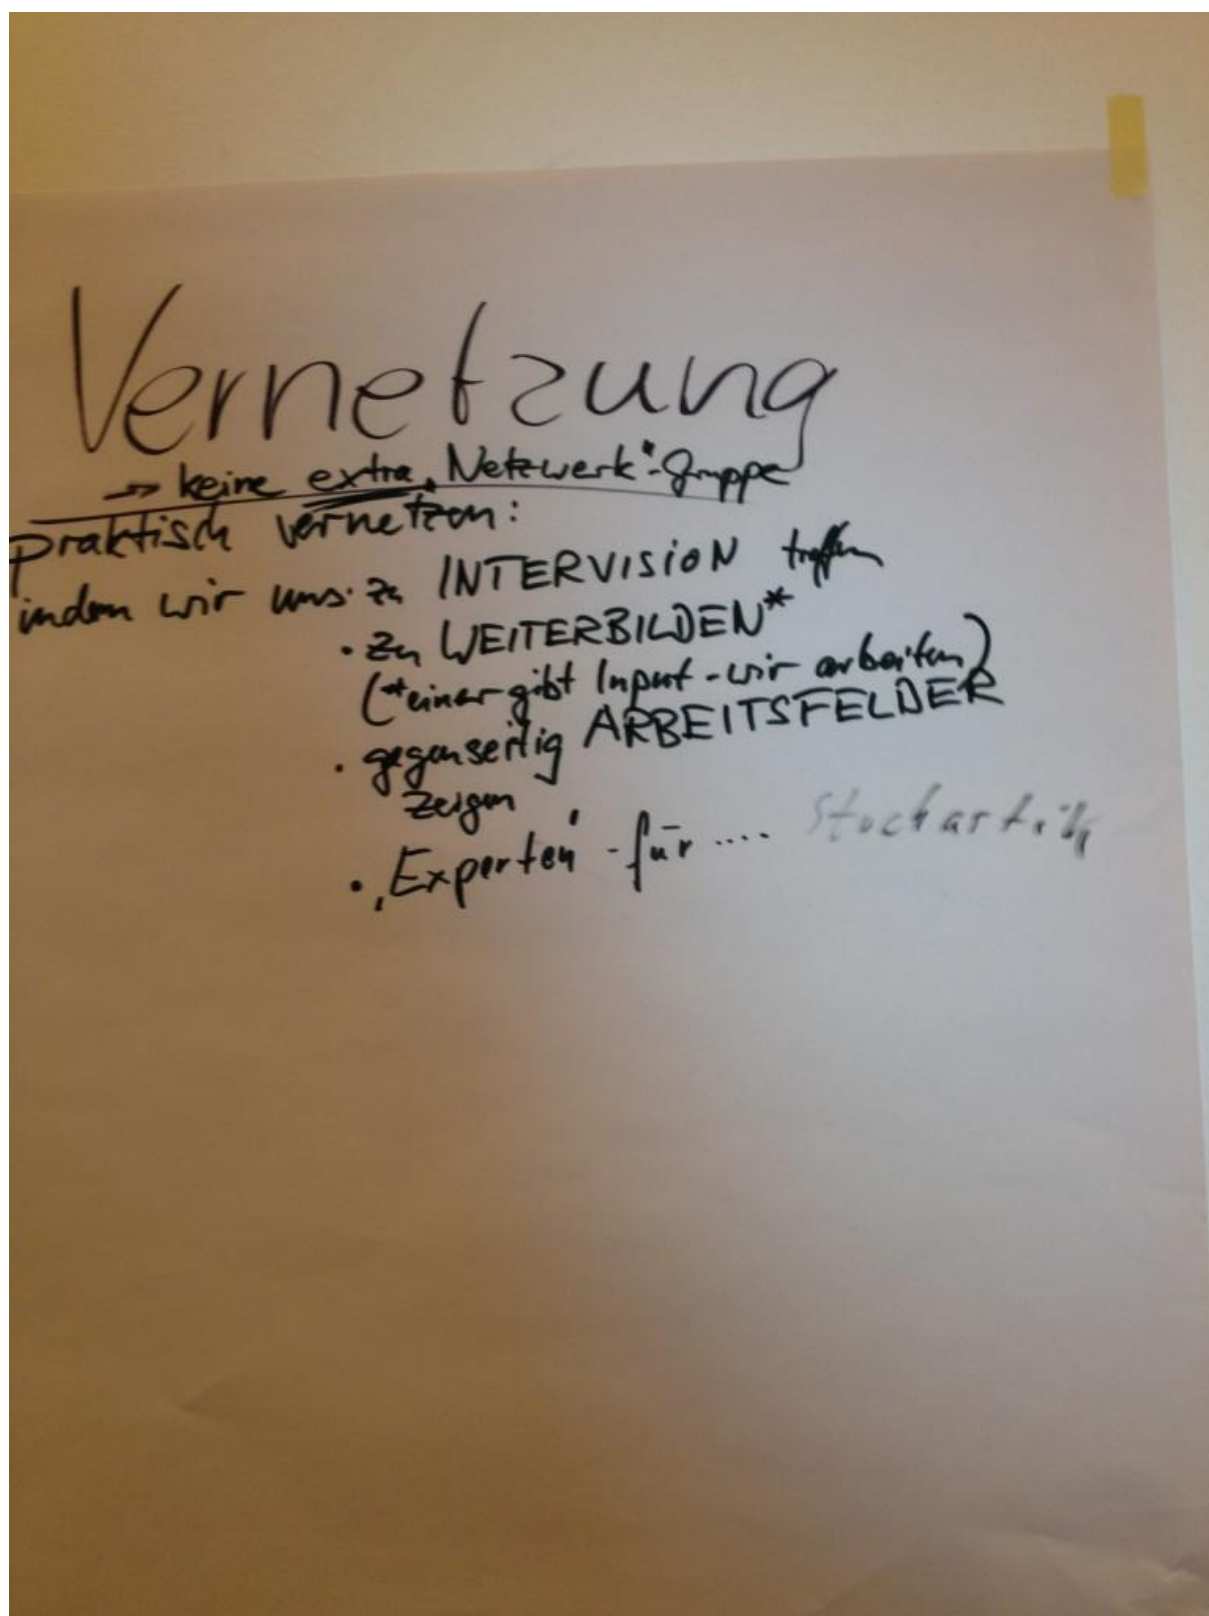 Vernetzung
→ keine extra „Netzwerk"-Gruppe
praktisch vernetzen:
indem wir uns · zu INTERVISION treffen
· zu WEITERBILDEN*
(*einer gibt Input - wir arbeiten)
· gegenseitig ARBEITSFELDER
zeigen
· ‚Experten' - für ....